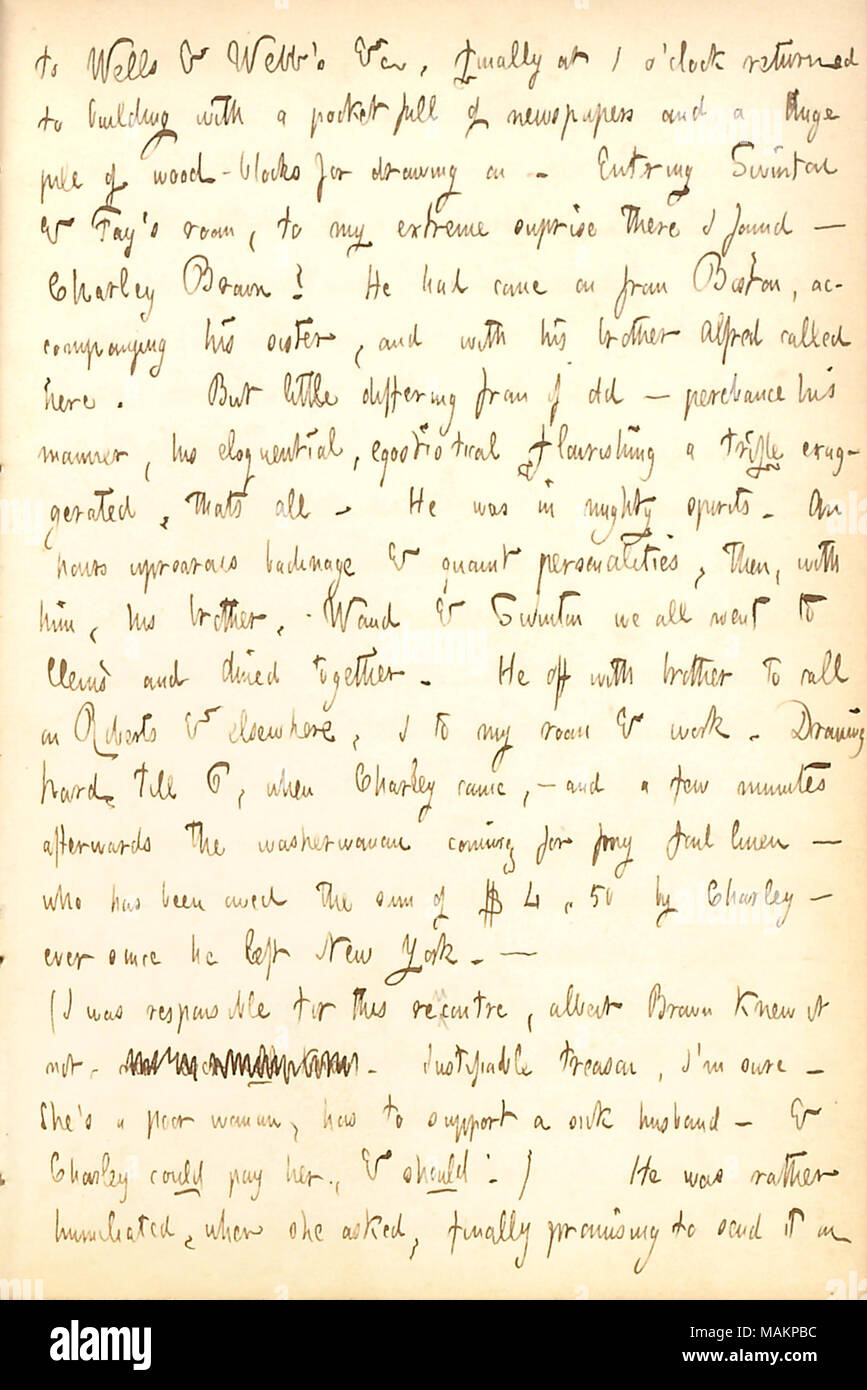 to Wells & Webb's &c, finally at 1 o'clock returned
to building with a pocket full of newspapers and a huge
pile of wood-blocks for drawing on. Entring Swinton
& Fay's room, to my extreme suprise there I found —
Charley Brown! He had come on from Boston, ac-
companying his sister, and with his brother Alfred called
here. But little differing from of old — perchance his
manner, his eloquential, egostiotical flourishing a trifle exag-
gerated, thats all. He was in mighty spirits. An
hours uproarous badinage & quaint personalities, then, with
him, his brother, Waud & Swinton we all went to
and dined together. He off with brother to call
on Roberts & elsewhere, I to my room & work. Drawing
hard till 6, when Charley came, — and a few minutes
afterwards the washerwoman coming for my foul linen —
who has been owed the sum of $4.50 by Charley —
ever since he left New York. —
(I was responsible for this recontre, albeit Brown knew it
not. Justifiable treason, I'm sure —
She's a poor woman, has to support a sick husband — &
Charley could pay her, & should.) He was rather
humiliated, when she asked, finally promising to send it on
alamy
Image ID: MAKPBC
www.alamy.com